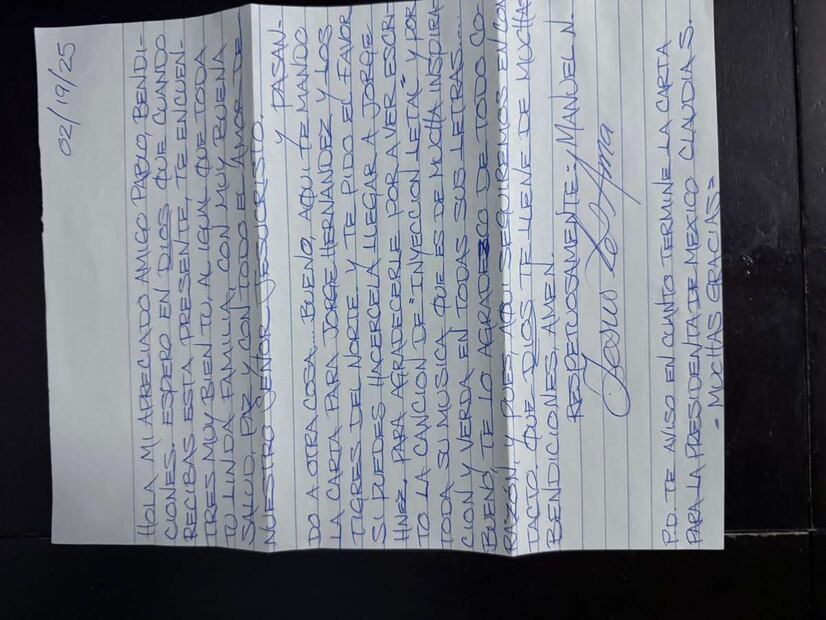 02/19/25
HOLA MI APRECIADO AMIGO PABLO, BENDI-
CIONES. ESPERO EN DIOS QUE CUANDO
RECIBAS ESTA PRESENTE, TE ENCUEN-
TRES MUY BIEN TU, AL IGUAL QUE TODA
TU LINDA FAMILIA, CON MUY BUENA
SALUD, PAZ Y CON TODO EL AMOR DE
NUESTRO SEÑOR JESUCRISTO.
Y PASAN-
DO A OTRA COSA... BUENO, AQUI TE MANDO
LA CARTA PARA JORGE HERNANDEZ Y LOS
TIGRES DEL NORTE Y TE PIDO EL FAVOR
SI PUEDES HACERCELA LLEGAR A JORGE
HNEZ. PARA AGRADECERLE POR AVER ESCRI-
TO LA CANCION DE "INYECCION LETAL" Y POR
TODA SU MUSICA QUE ES DE MUCHA INSPIRA
CION Y VERDA EN TODAS SUS LETRAS...
BUENO, TE LO AGRADEZCO DE TODO CO-
RAZON, Y PUES, AQUI SEGUIREMOS EN CON
TACTO. QUE DIOS TE LLENE DE MUCHAS
BENDICIONES, AMEN.
RESPETUOSAMENTE - MANUEL N.
Jesus Te Ama
P.D. TE AVISO EN CUANTO TERMINE LA CARTA
PARA LA PRESIDENTA DE MEXICO CLAUDIA S.
= MUCHAS GRACIAS =